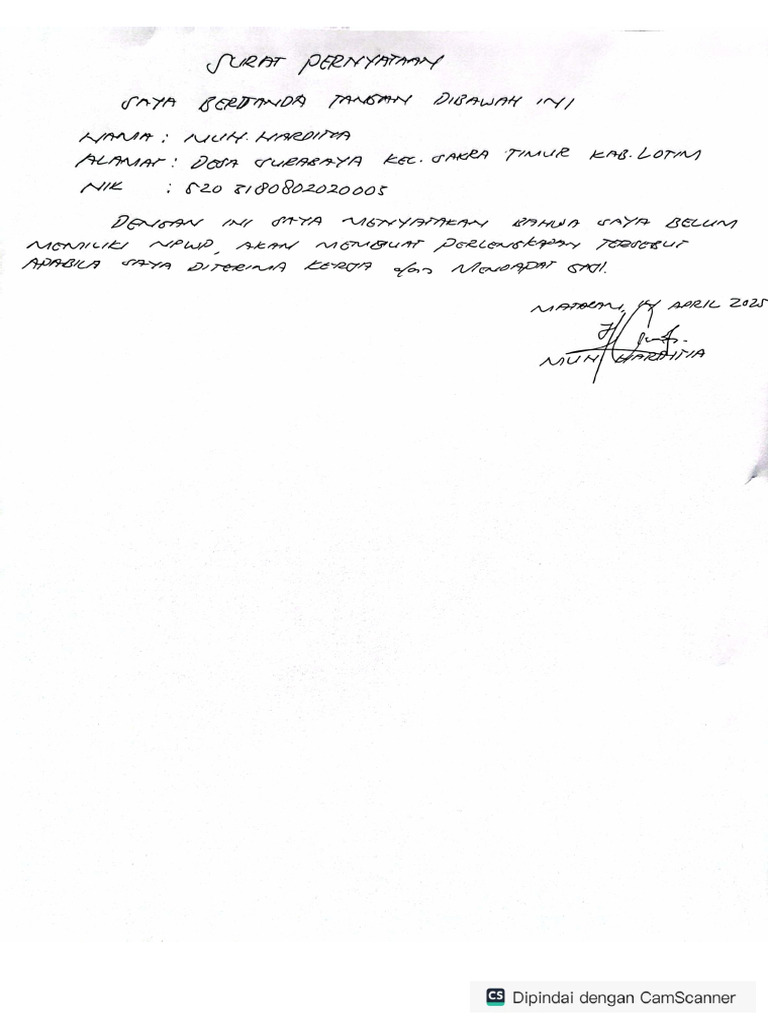 SURAT PERNYATAAN
SAYA BERTANDA TANGAN DIBAWAH INI
NAMA : MUH. HARDITIA
ALAMAT : DESA SURABAYA KEC. SAKRA TIMUR KAB. LOTIM
NIK : 520 3180802020005
DENGAN INI SAYA MENYATAKAN BAHWA SAYA BELUM
MEMILIKI NPWP, AKAN MEMBUAT PERLENGKAPAN TERSEBUT
APABILA SAYA DITERIMA KERJA dan MENDAPAT GAJI.
MATARAM, 14 APRIL 2025
MUH HARDITIA
CS Dipindai dengan CamScanner